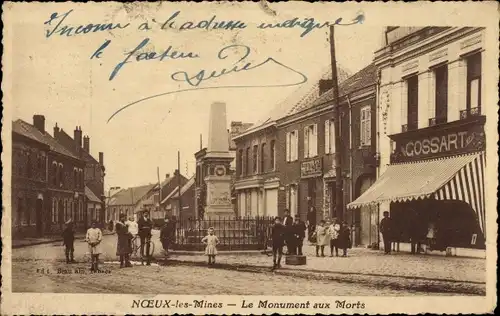 Inconnu à l'adresse indiquée
le facteur
GOSSART
NŒUX-les-Mines – Le Monument aux Morts